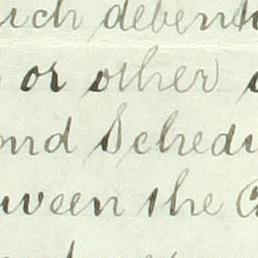 uch debentu
or other
ond Schedu
tween the C